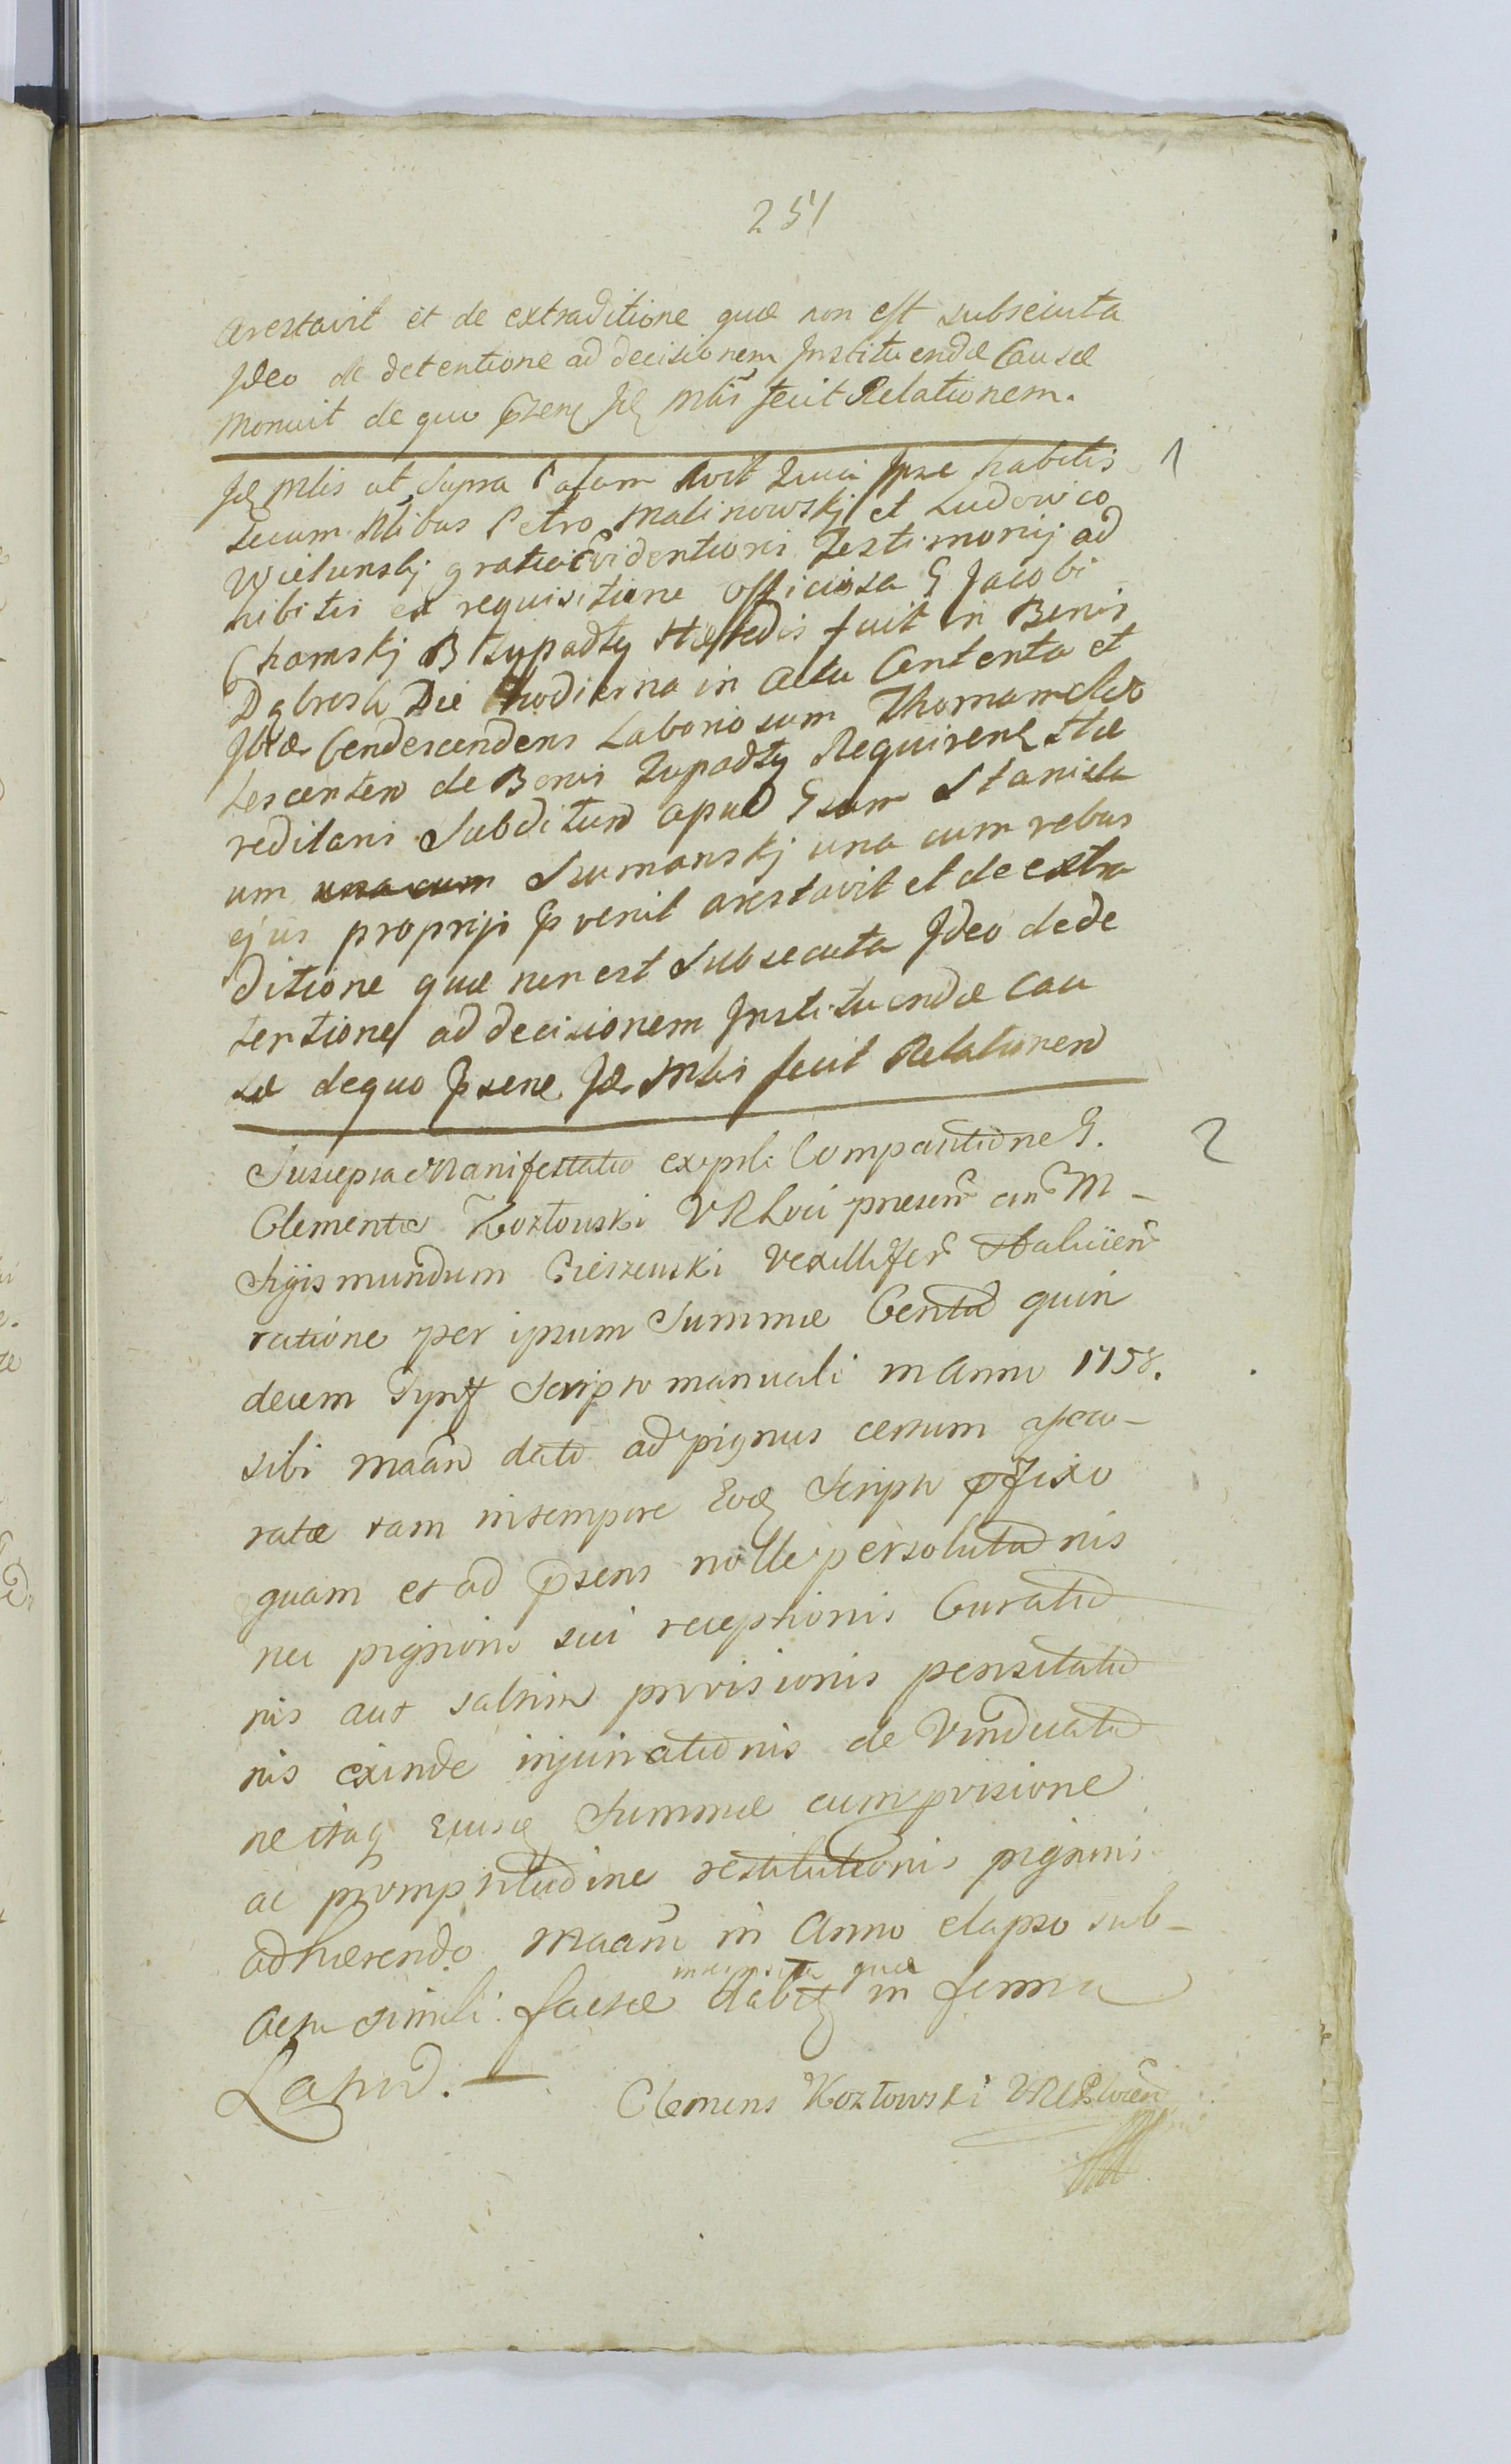 251
arestavit et de extraditione quæ non est subsecuta
Ideo de detentione ad decisionem Instituendæ Causæ
Monuit de quo Idē Mlis fecit Relationem.
Idē Mlis ut Supra Palam dixit Quia Ipse habitis 1
secum Nlibus Petro Malinowskj et Ludowico
Wielunskj gratia Evidentioris Testimonij ad
hibitis ex requisitione officiosa G Jacobi
Chomskj B Zupadły Hæredis fuit in Bonis
Dąbrosh Die Hodierna in Actu Contenta et
Ibidē Condescendens Laboriosum Thomam Ado
lescentem de Bonis Zupadły Requirenť Hæ
reditariis Subditum apud Gsum Stanisla
um una cum Szumanskj una cum rebus
ejus proprijs pvenit arestavit et de extra
ditione quæ non est Subsecuta Ideo de de
tentione ad decisionem Instituendæ Cau
sæ de quo psene Idē Mlis fecit Relationem
Suscepta Manifestatio ex psli Comparitione G. 2
Clementis Kozłouski VR Loci præseñ cin M-
Sigismundum Cieszeuski Vexilliferũ Haliciēn
ratione per ipsum Summæ Centũ quin
decem Tynf Scripto manuali in Anno 1758.
sibi Maañ dato ad pignus certum assecu-
ratæ tam in tempore Eodē Scripto pfixo
quam et ad psens nolle persolutio nis
nec pignoris sui receptionis Curatio
nis aut saltim provisionis pensitatio
nis exinde injuriationis de Vindicatio
ne itaq Eiusdē Summæ cum pvisione
ac promptitudine restitutionis pignoris
adhærendo Maañi in Anno elapso sub-
Actu simili factæ in quæ in forma
Latiũ.
Clemens Kozłowski